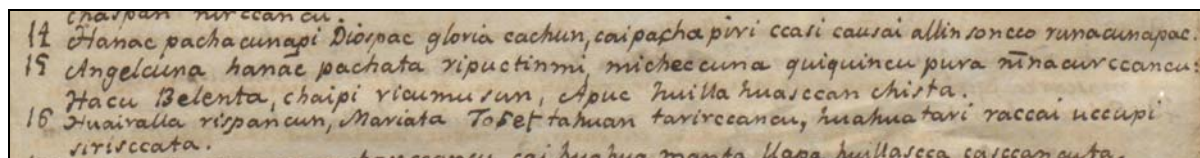 chaspan nirccancu.
14 Hanac pachacunapi Diospac gloria cachun, caipacha pivi ccasi causai allinsoncco runacunapac.
15 Angelcuna hanac̄ pachata ripuctinmi, micheccuna quiquincu pura nīnacurccancu:
Hacu Belenta, chaipi ricumusun, Apuc huilla huasccan chista.
16 Huairalla rispancun, Mariata Josef tahuan tarirccancu, huahuatari raccai uccupi
sirisccata.
cai huahua manta llapa huillascca casccancuta